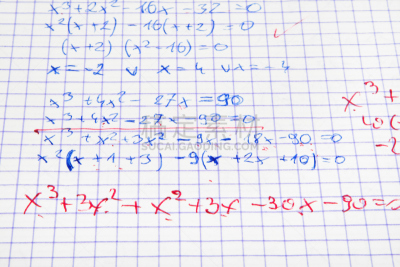 x³+2x²-16x-32=0
x²(x+2)-16(x+2)=0
(x+2)(x²-16)=0
x=-2 ∨ x=4 ∨ x=-4
x³+4x²-27x=90
x³+4x²-27x-90=0
x³+x²+3x²-9x-18x-90=0
x²(x+1+3)-9(x+2x+10)=0
x³+3x²+x²+3x-30x-90=0
x³+
40(
-2
SUCAI.GAODING.COM